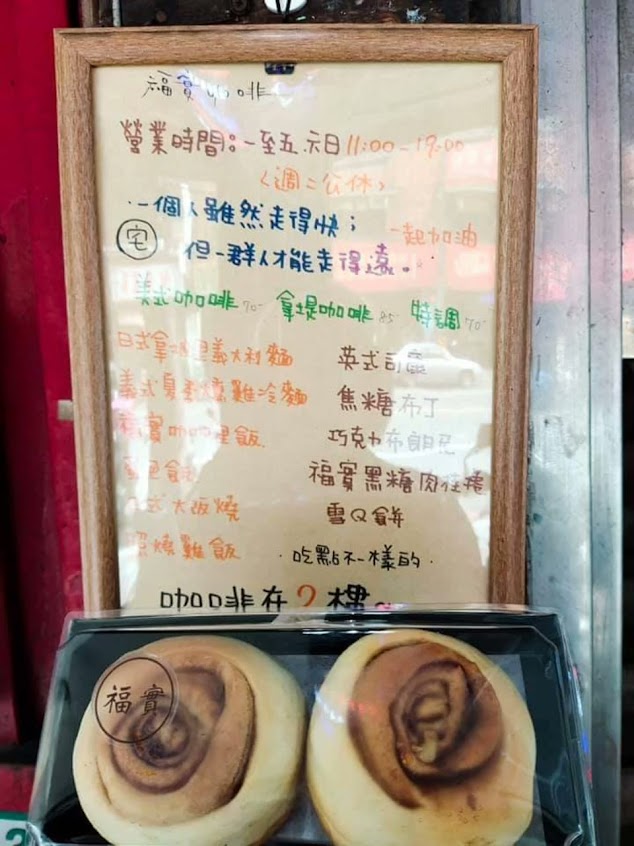 福實咖啡
營業時間：一至五、六日11:00-19:00
〈週二公休〉
一個人雖然走得快；
宅 但一群人才能走得遠。
一起加油
美式咖啡70 拿堤咖啡85 特調70
日式拿坡里義大利麵 英式司康
義式夏 雞冷麵 焦糖布丁
福實咖哩飯 巧克力布朗尼
福實黑糖肉桂捲
式大阪燒 雪Q餅
照燒雞飯 ·吃點不一樣的·
咖啡在2樓。
福實
2